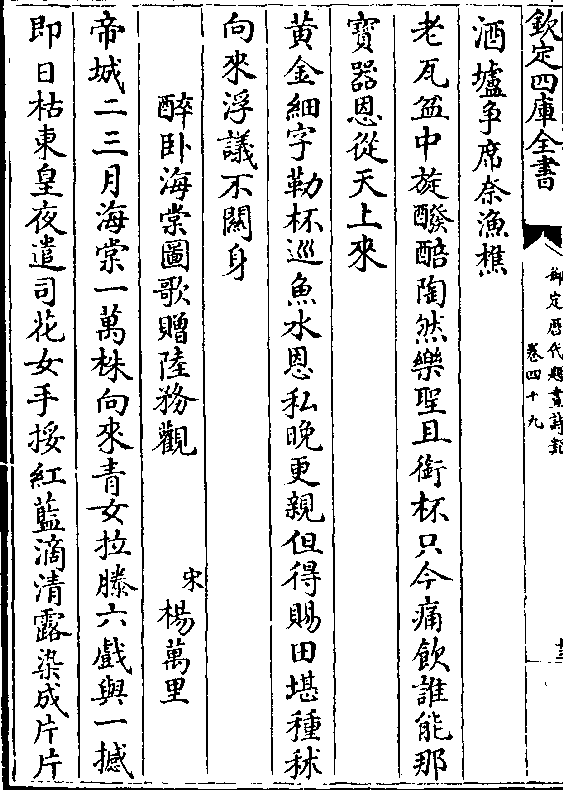 欽定四庫全書
御定歷代題畫詩類
卷四十九
酒壚争席奈漁樵
老瓦盆中旋醱醅陶然樂聖且銜杯只今痛飲誰能那
寳器恩從天上來
黄金細字勒杯巡魚水恩私晚更親但得賜田堪種秫
向來浮議不關身
醉卧海棠圖歌贈陸務觀
宋楊萬里
帝城二三月海棠一萬株向來青女拉滕六戲與一撼
即日枯東皇夜遣司花女手挼紅藍滴清露染成片片